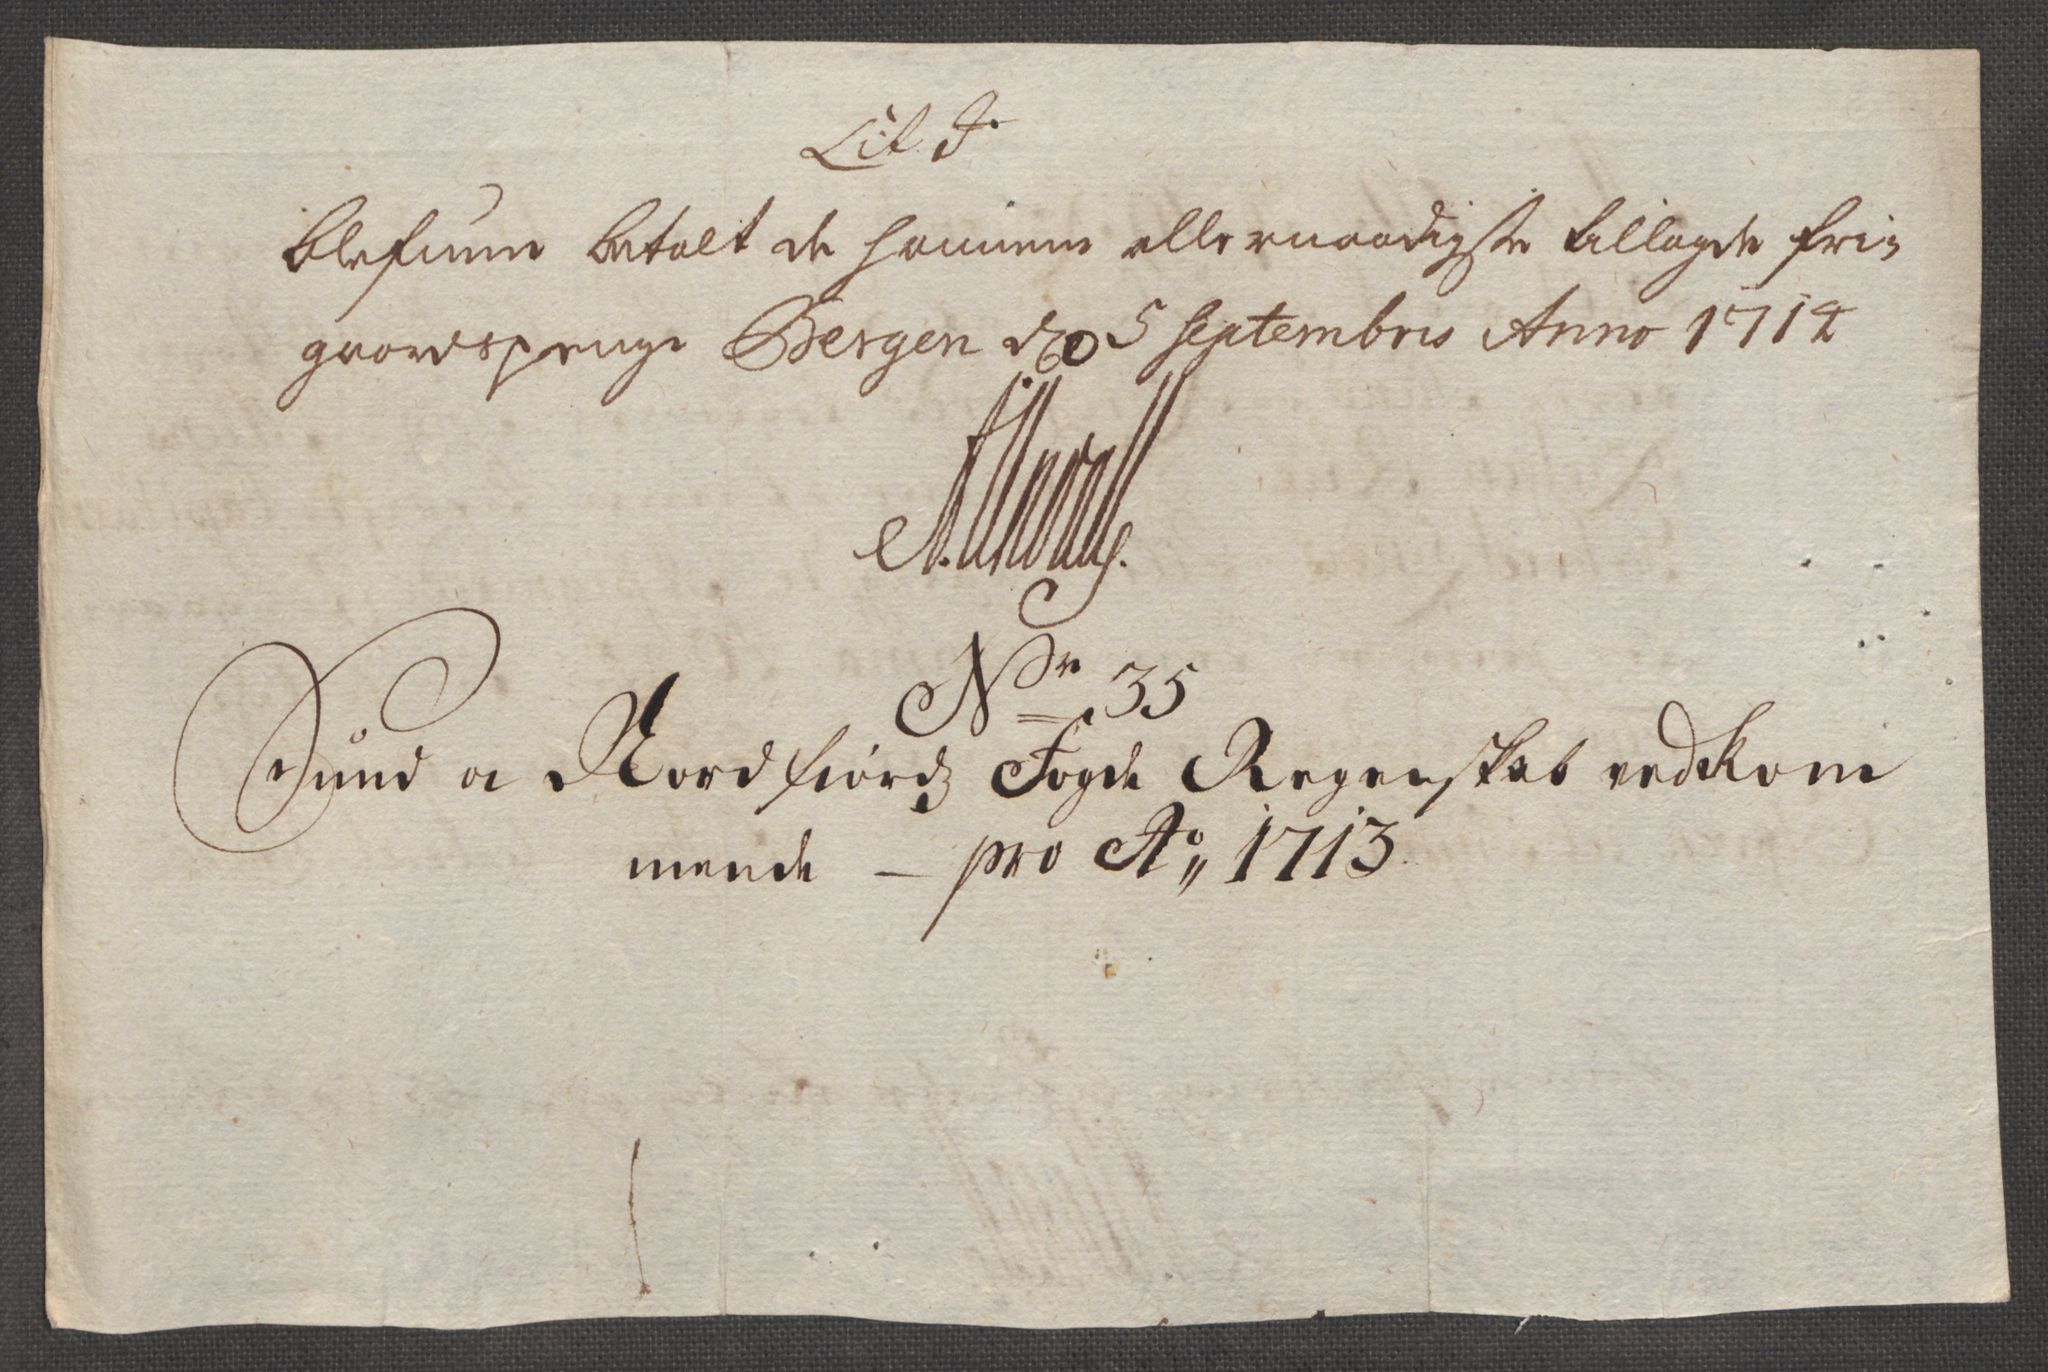 Lit I
blefuen betalt de hannem allernaadigste tillagde frie
gaardspenge Bergen d. 5 Septembris Anno 1714
Nr 35
Sund oc Nordfiords Fogde Regenskab vedkom
mende – pro Ao 1713